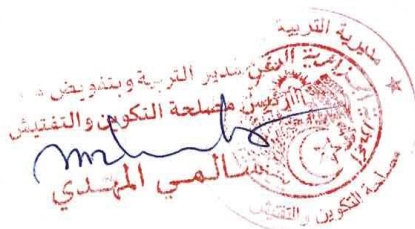 مديرية التربية
مدير التربية وبتفويض
رئيس مصلحة التكوين والتفتيش
سالمي المهدي
مصلحة التكوين والتفتيش